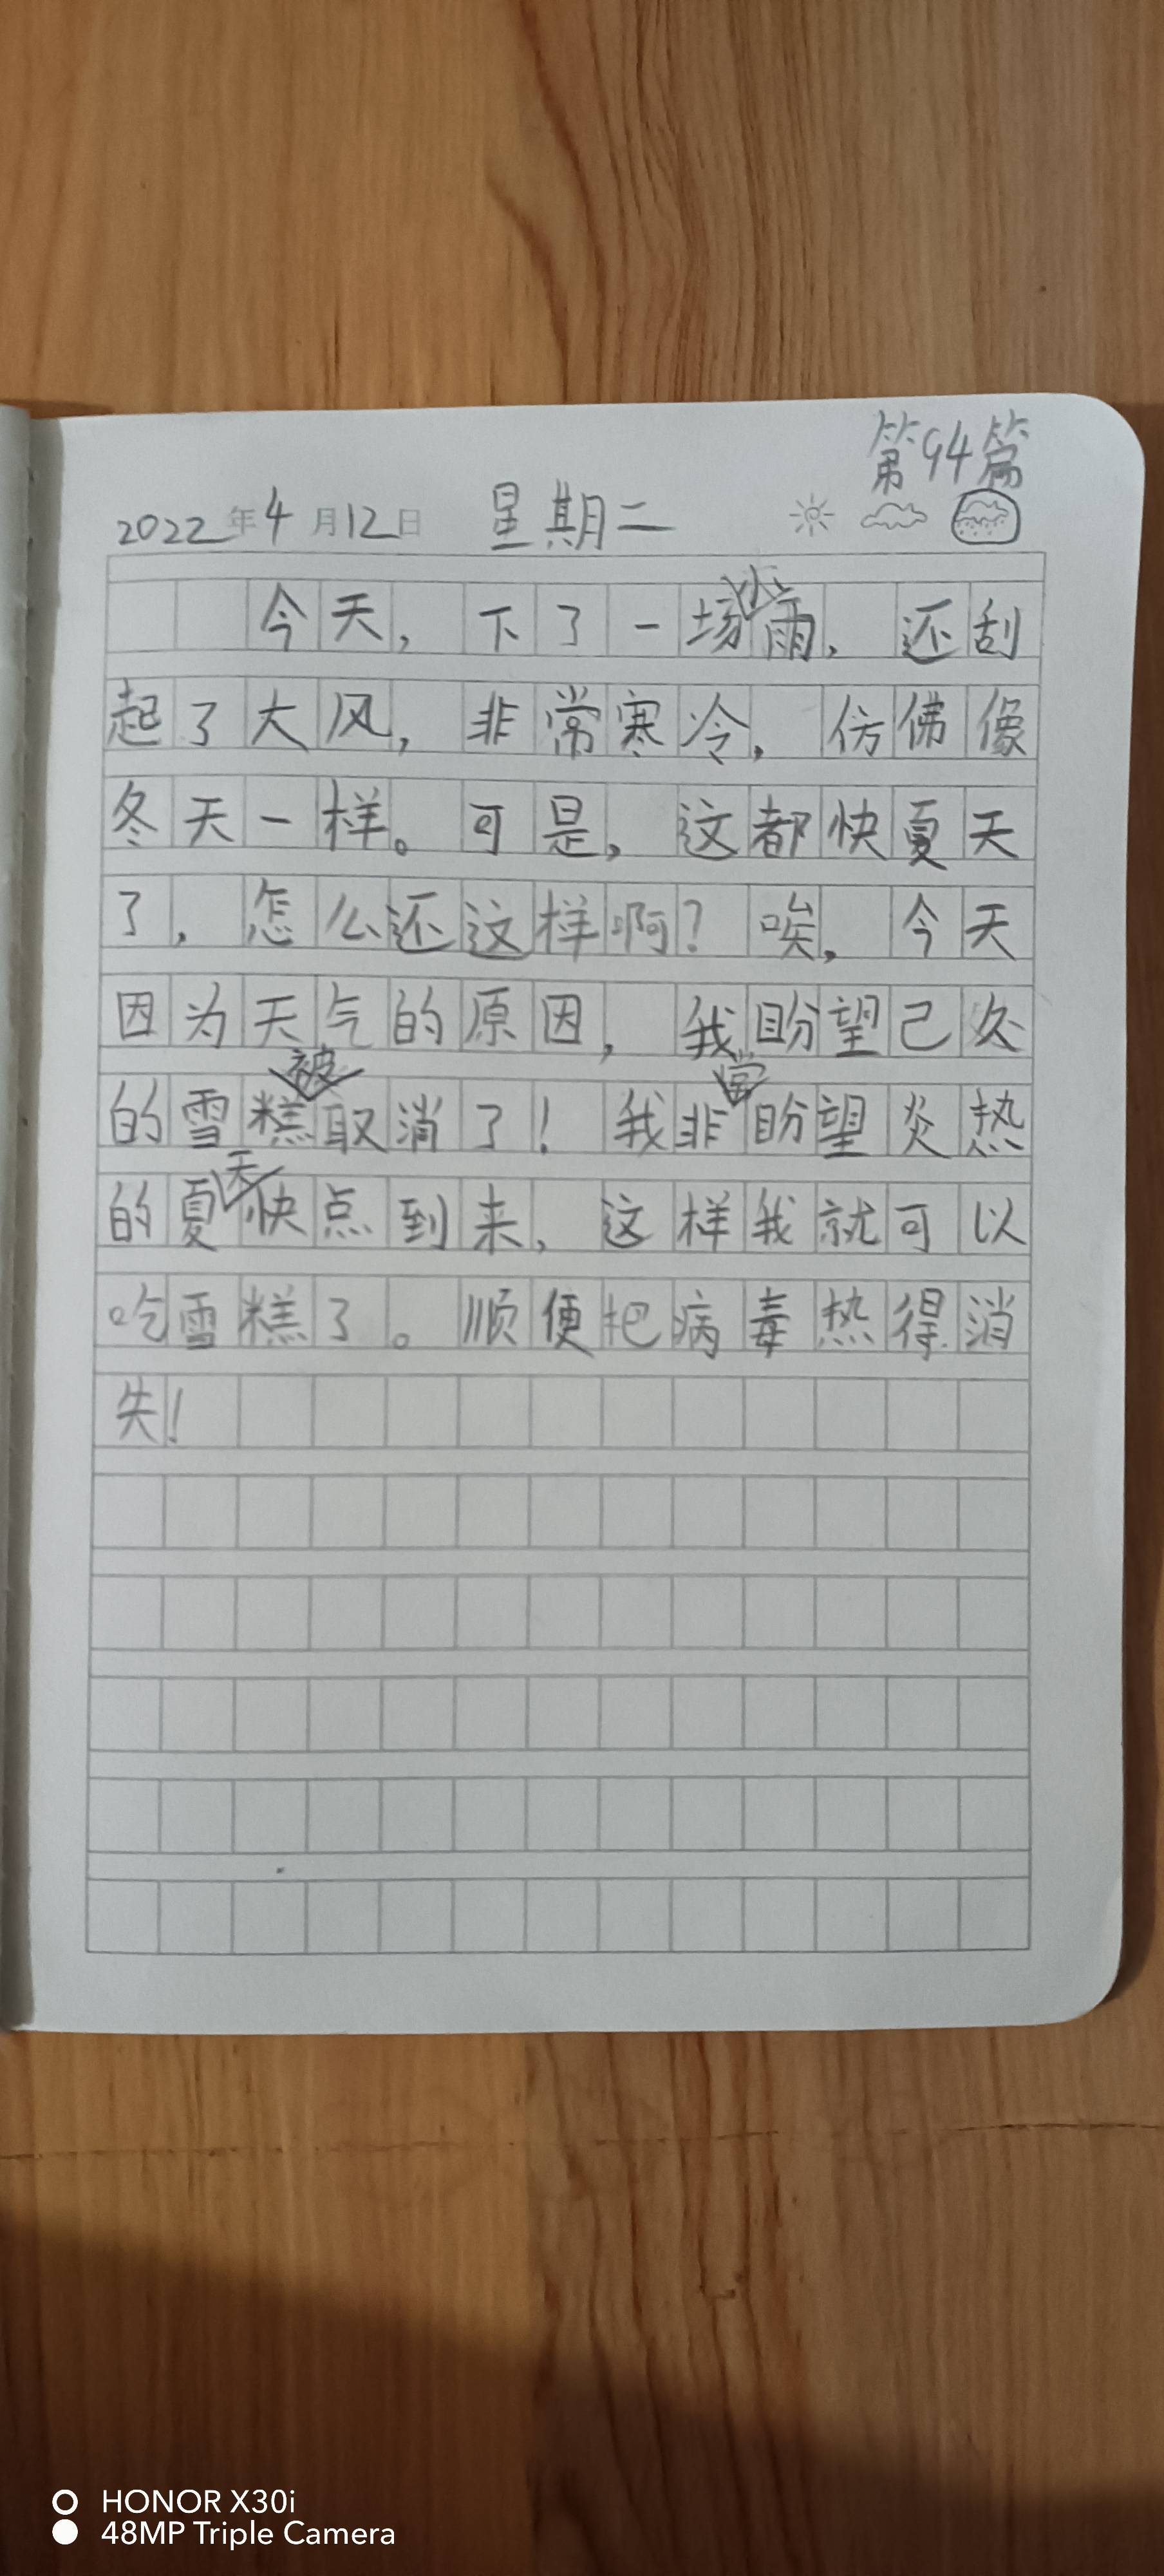 第94篇
2022年4月12日 星期二
今天，下了一场小雨，还刮
起了大风，非常寒冷，仿佛像
冬天一样。可是，这都快夏天
了，怎么还这样啊？唉，今天
因为天气的原因，我盼望己久
的雪糕被取消了！我非常盼望炎热
的夏天快点到来，这样我就可以
吃雪糕了。顺便把病毒热得消
失！
HONOR X30i
48MP Triple Camera